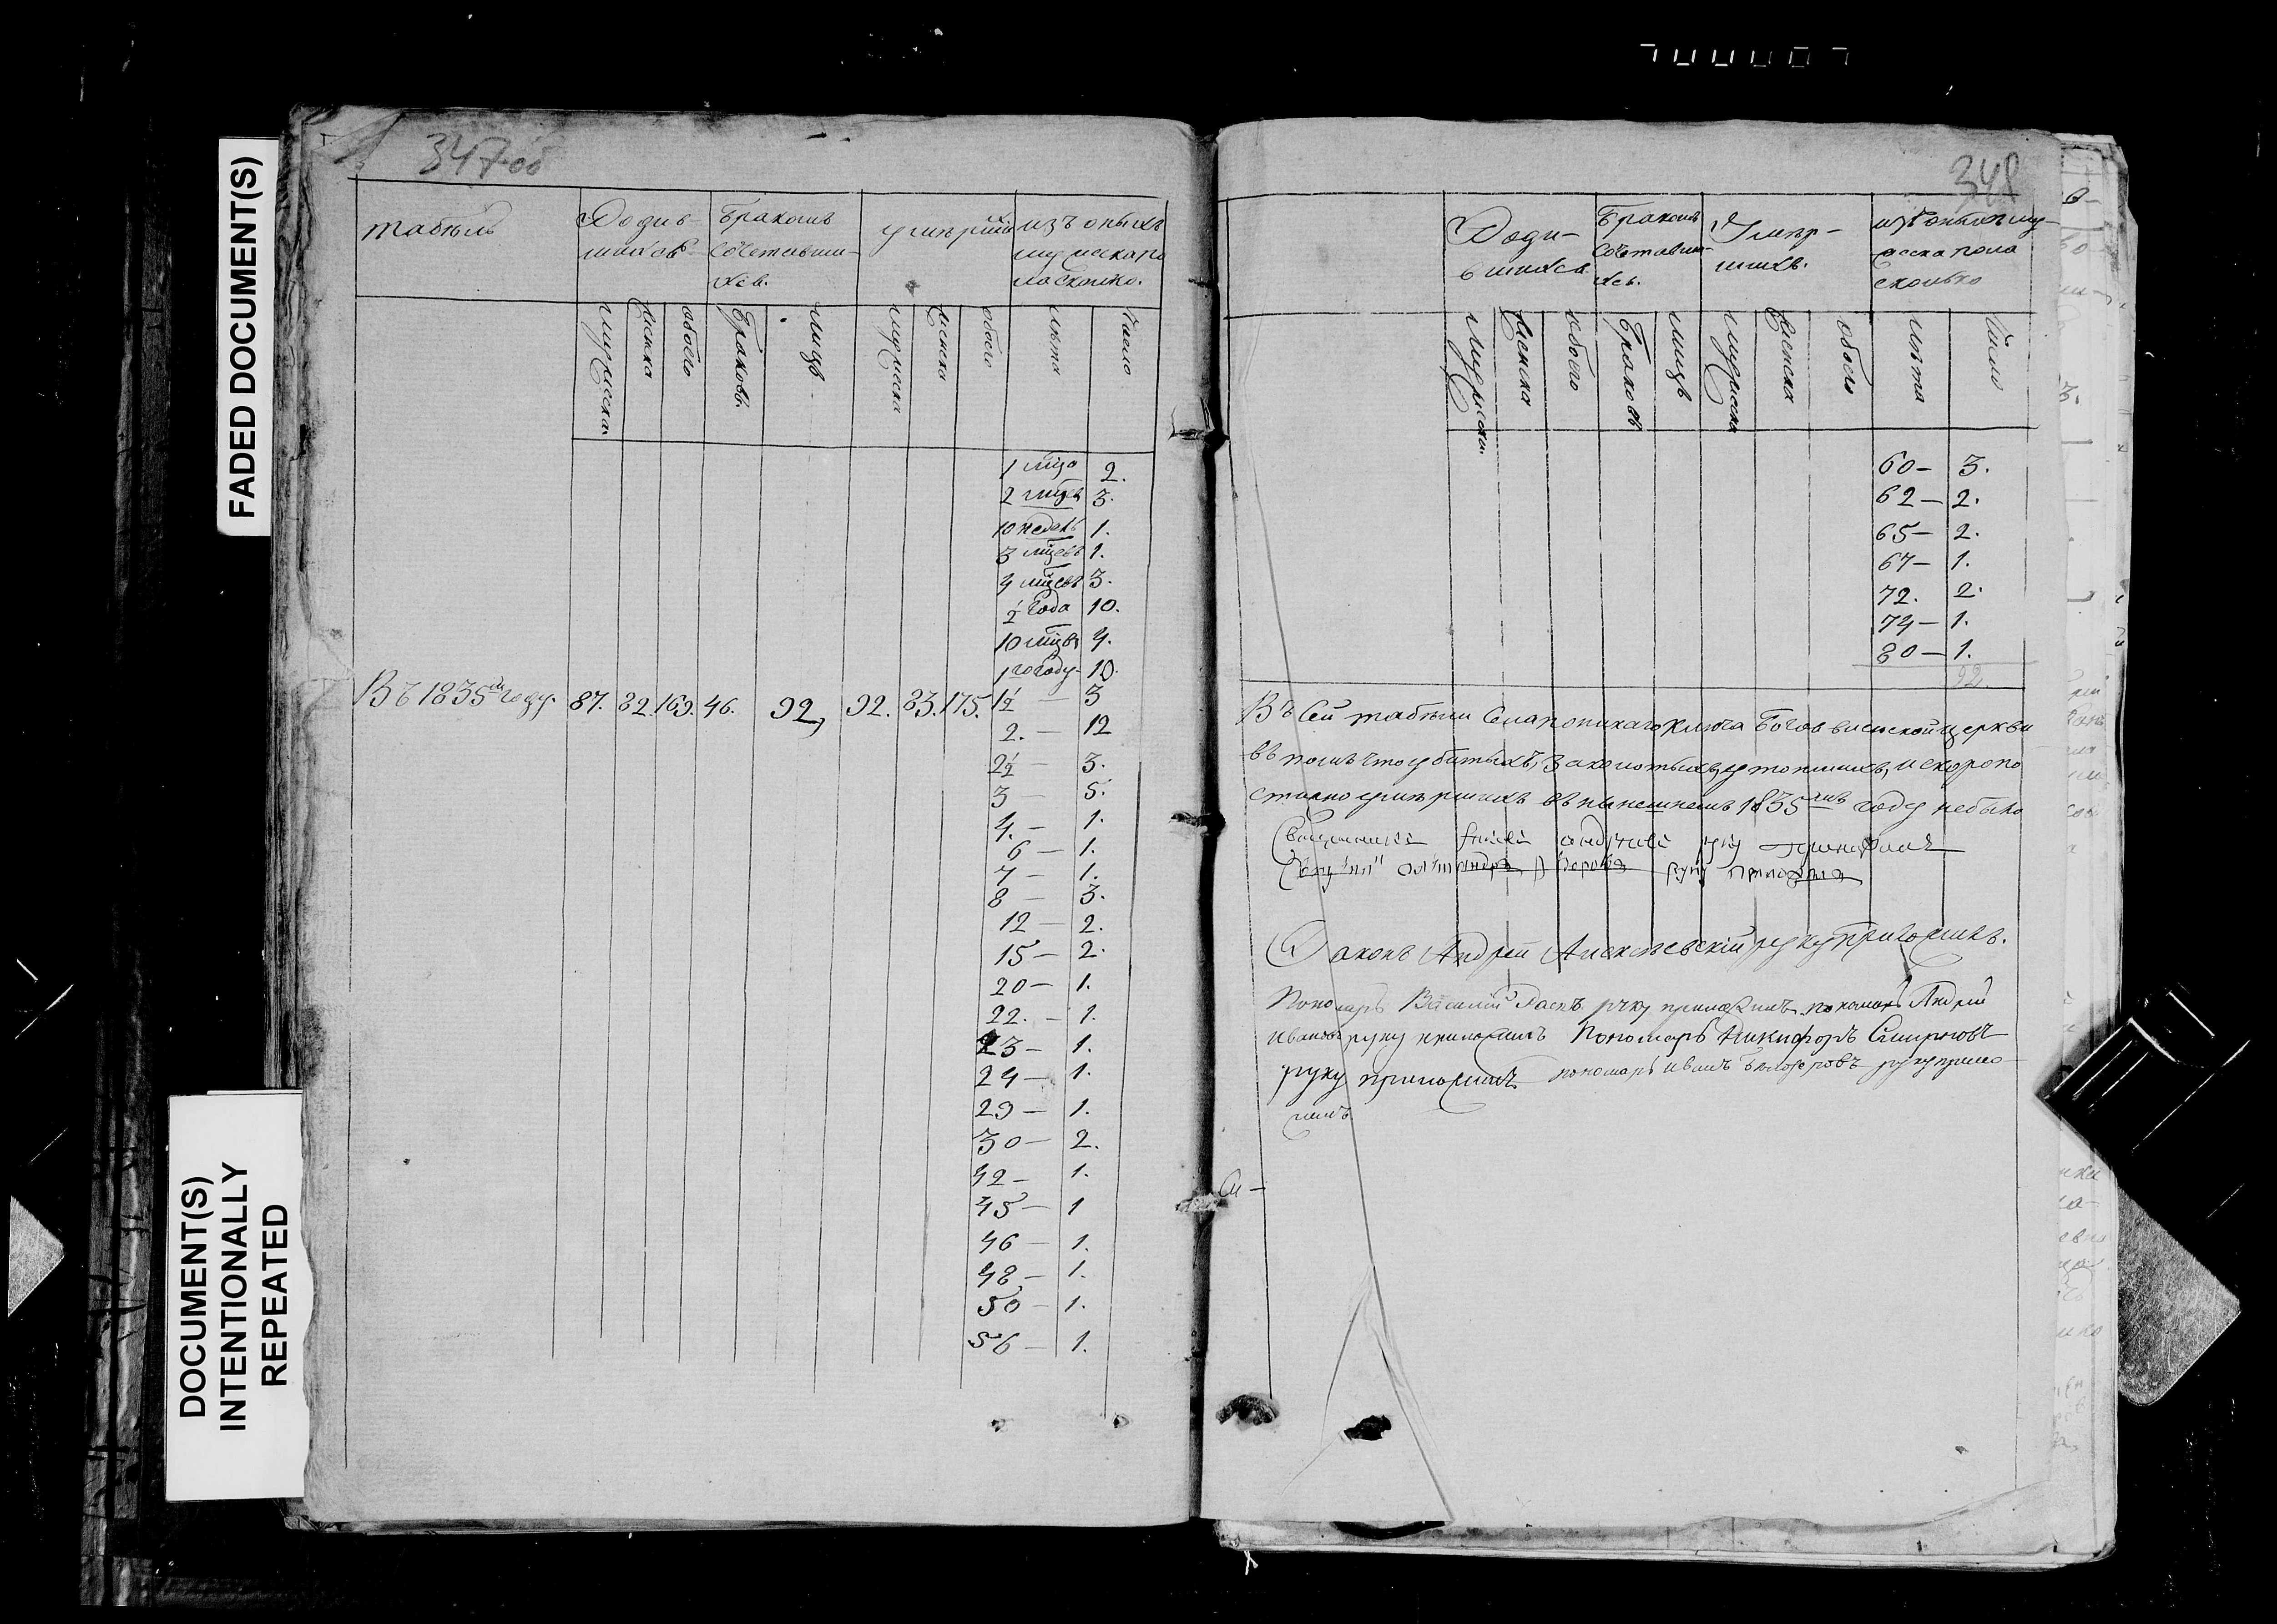 FADED DOCUMENT(S)
DOCUMENT(S)
INTENTIONALLY
REPEATED
347об
табель
Родив
шихся
Бракомъ
Сочетавши-
хсь.
умершихъ
изъ оныхъ
мужеска по
ла сколько.
мужеска
женска
обоего
браковъ
лицъ
мужеска
женска
обоего
лѣта
число
1 мца 2.
2 мцвъ 3.
10 недель 1.
3 мцевъ 1.
4 мцевъ 3.
½ года 10.
10 мцвъ 4.
1го году 10.
Въ 1835мъ году. 87. 82. 169. 46. 92, 92. 83. 175. 1½ — 3
2. — 12
2½ — 3.
3 — 5.
4. — 1.
6 — 1.
7 — 1.
8 — 3.
12 — 2.
15 — 2.
20 — 1.
22. — 1.
23 — 1.
24 — 1.
29 — 1.
30 — 2.
42 — 1.
45 — 1
46 — 1.
48 — 1.
50 — 1.
56 — 1.
348
Роди-
вшихся
Бракомъ
Сочетавши
хсь.
Умер-
шихъ.
изъ оныхъ му-
жеска пола
сколько
мужеска
женска
обоего
браковъ
лицъ
мужеска
женска
обоего
лѣта
число
60 — 3.
62 — 2.
65 — 2.
67 — 1.
72. 2.
74 — 1.
80 — 1.
92.
Въ сей табели Ключа Богоявленской церкви
въ томъ что убитыхъ, заколотыхъ, утопшихъ, и скоропо
стижно умершихъ въ нынешнемъ 1835мъ году небыло
Священникъ руку приложилъ
руку приложилъ
Диаконъ Андрей Алексѣевскій руку приложилъ.
Пономарь Василий руку приложилъ пономарь Андрей
Ивановъ руку приложилъ Пономарь Никифоръ Смирновъ
руку приложилъ пономарь Иванъ руку прило
жилъ